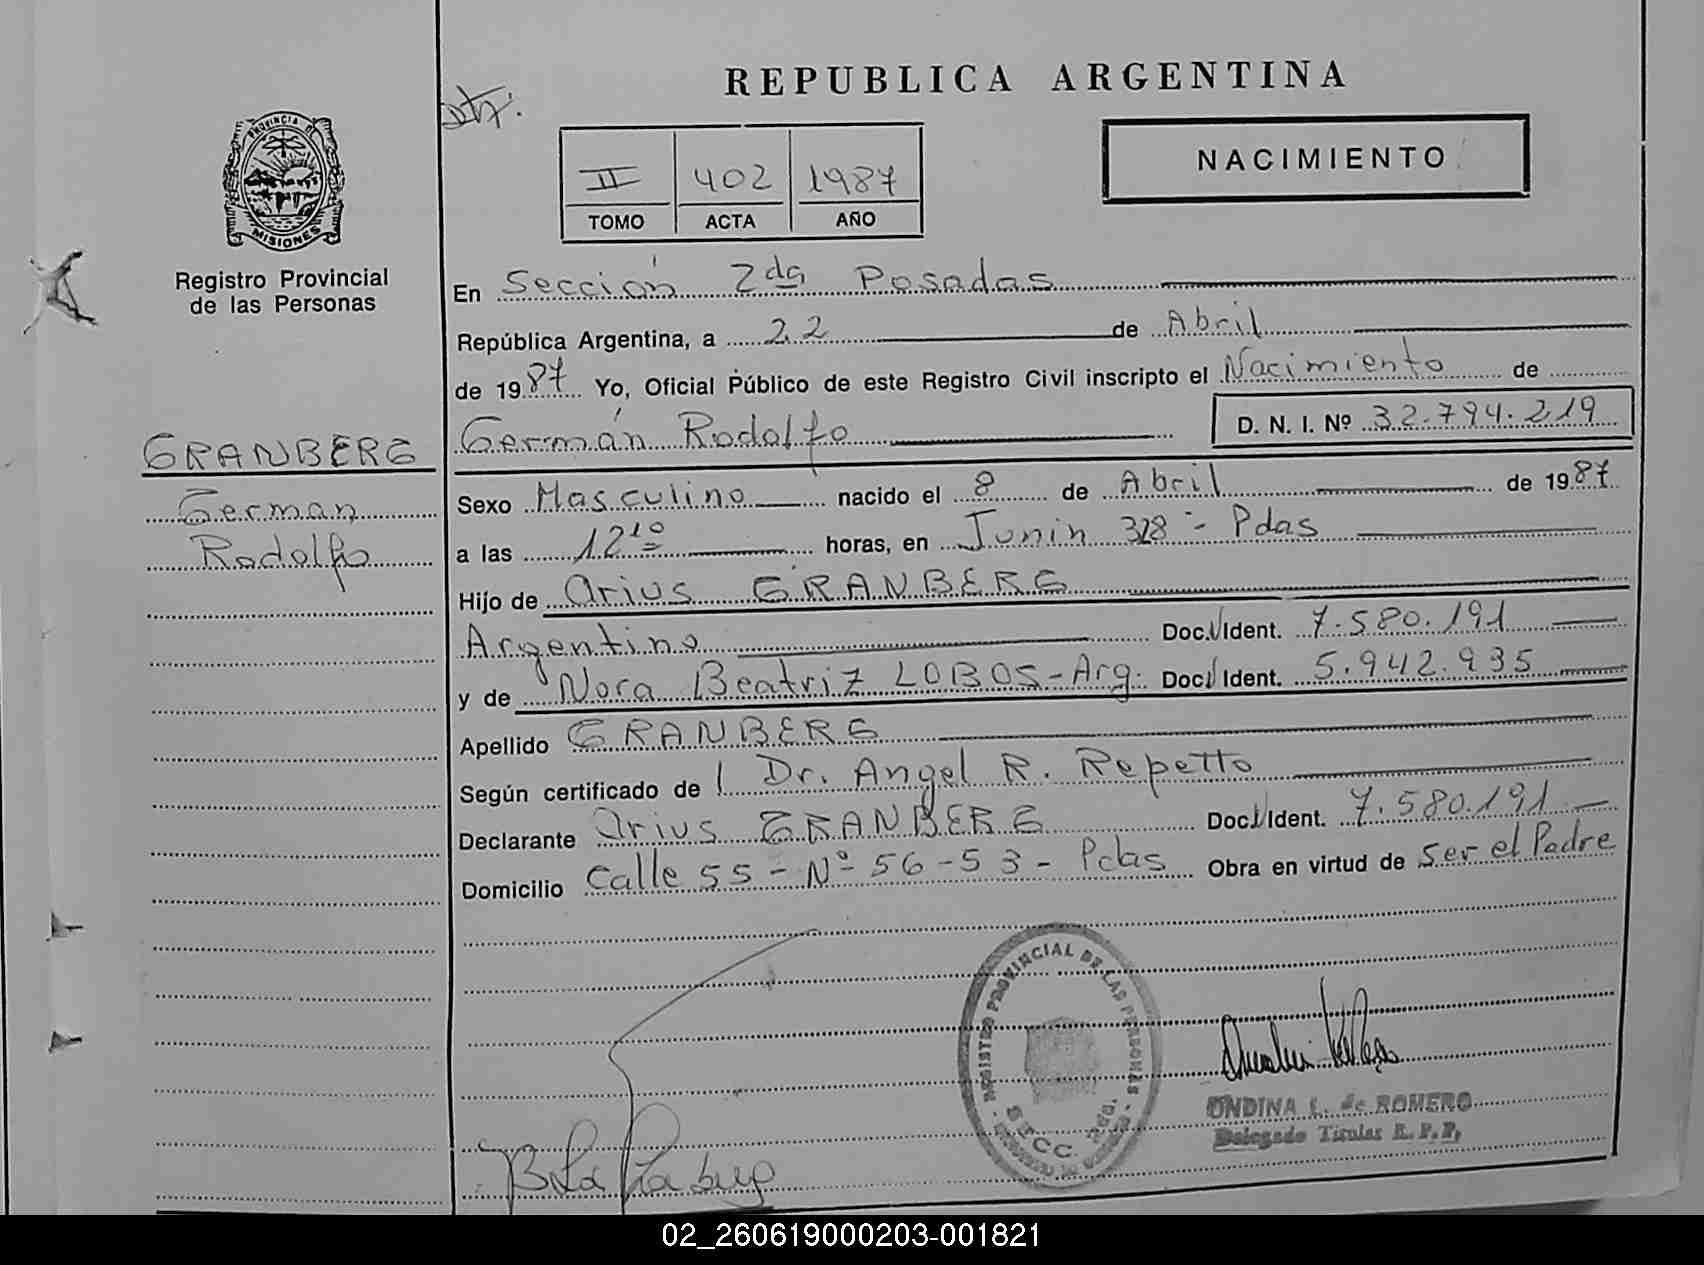 REPUBLICA ARGENTINA
NACIMIENTO
II 402 1987
TOMO ACTA AÑO
PROVINCIA DE
MISIONES
Registro Provincial
de las Personas
GRANBERG
German
Rodolfo
En Sección 2da Posadas
República Argentina, a 22 de Abril
de 1987 Yo, Oficial Público de este Registro Civil inscripto el Nacimiento de
Germán Rodolfo D. N. I. Nº 32.794.219
Sexo Masculino nacido el 8 de Abril de 1987
a las 12 10 horas, en Junin 328 - Pdas
Hijo de Arius GRANBERG
Argentino Doc. Ident. 7.580.191
y de Nora Beatriz LOBOS - Arg. Doc. Ident. 5.942.935
Apellido GRANBERG
Según certificado de Dr. Angel R. Repetto
Declarante Arius GRANBERG Doc. Ident. 7.580.191
Domicilio Calle 55 - Nº 56-53 - Pdas Obra en virtud de Ser el Padre
REGISTRO PROVINCIAL DE LAS PERSONAS
SECC. 2da.
ONDINA L. de ROMERO
Delegado Titular R. P. P.
02_260619000203-001821